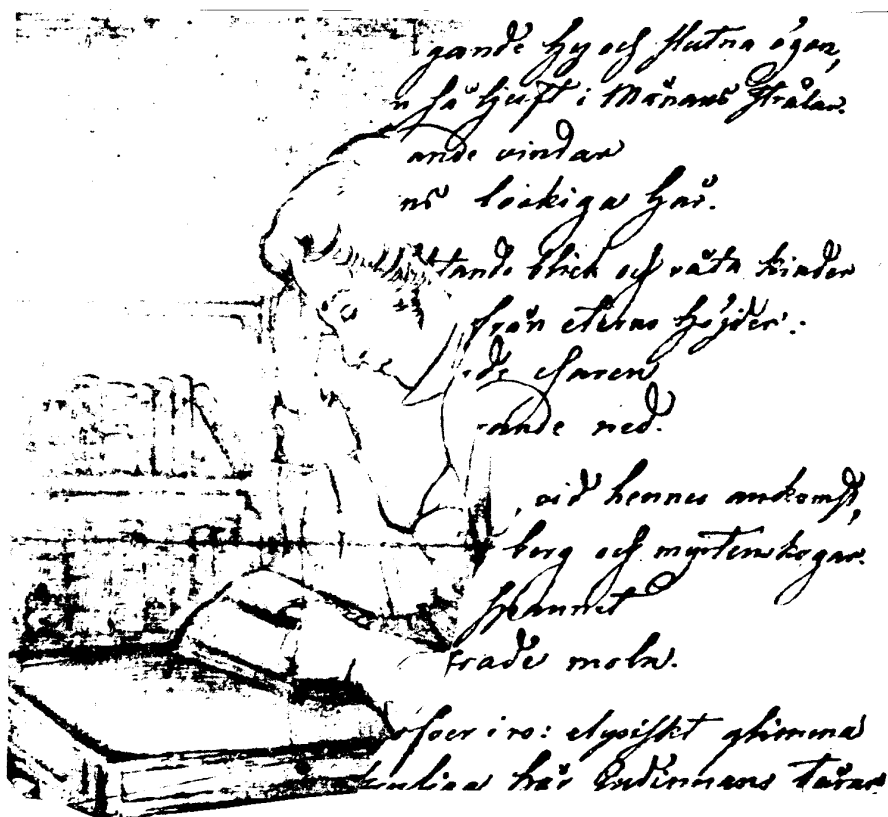 gande hy och slutna ögon,
n så ljuft i Månans strålar.
ande vindar
ns lockiga hår.
tande blick och våta kinder
från eterns höjder:
de charen
rande ned.
, vid hennes ankomst,
berg och myrtenskogar.
spannet
frade moln.
ofver i ro: elysiskt glimma
hår Gudinnans tårar